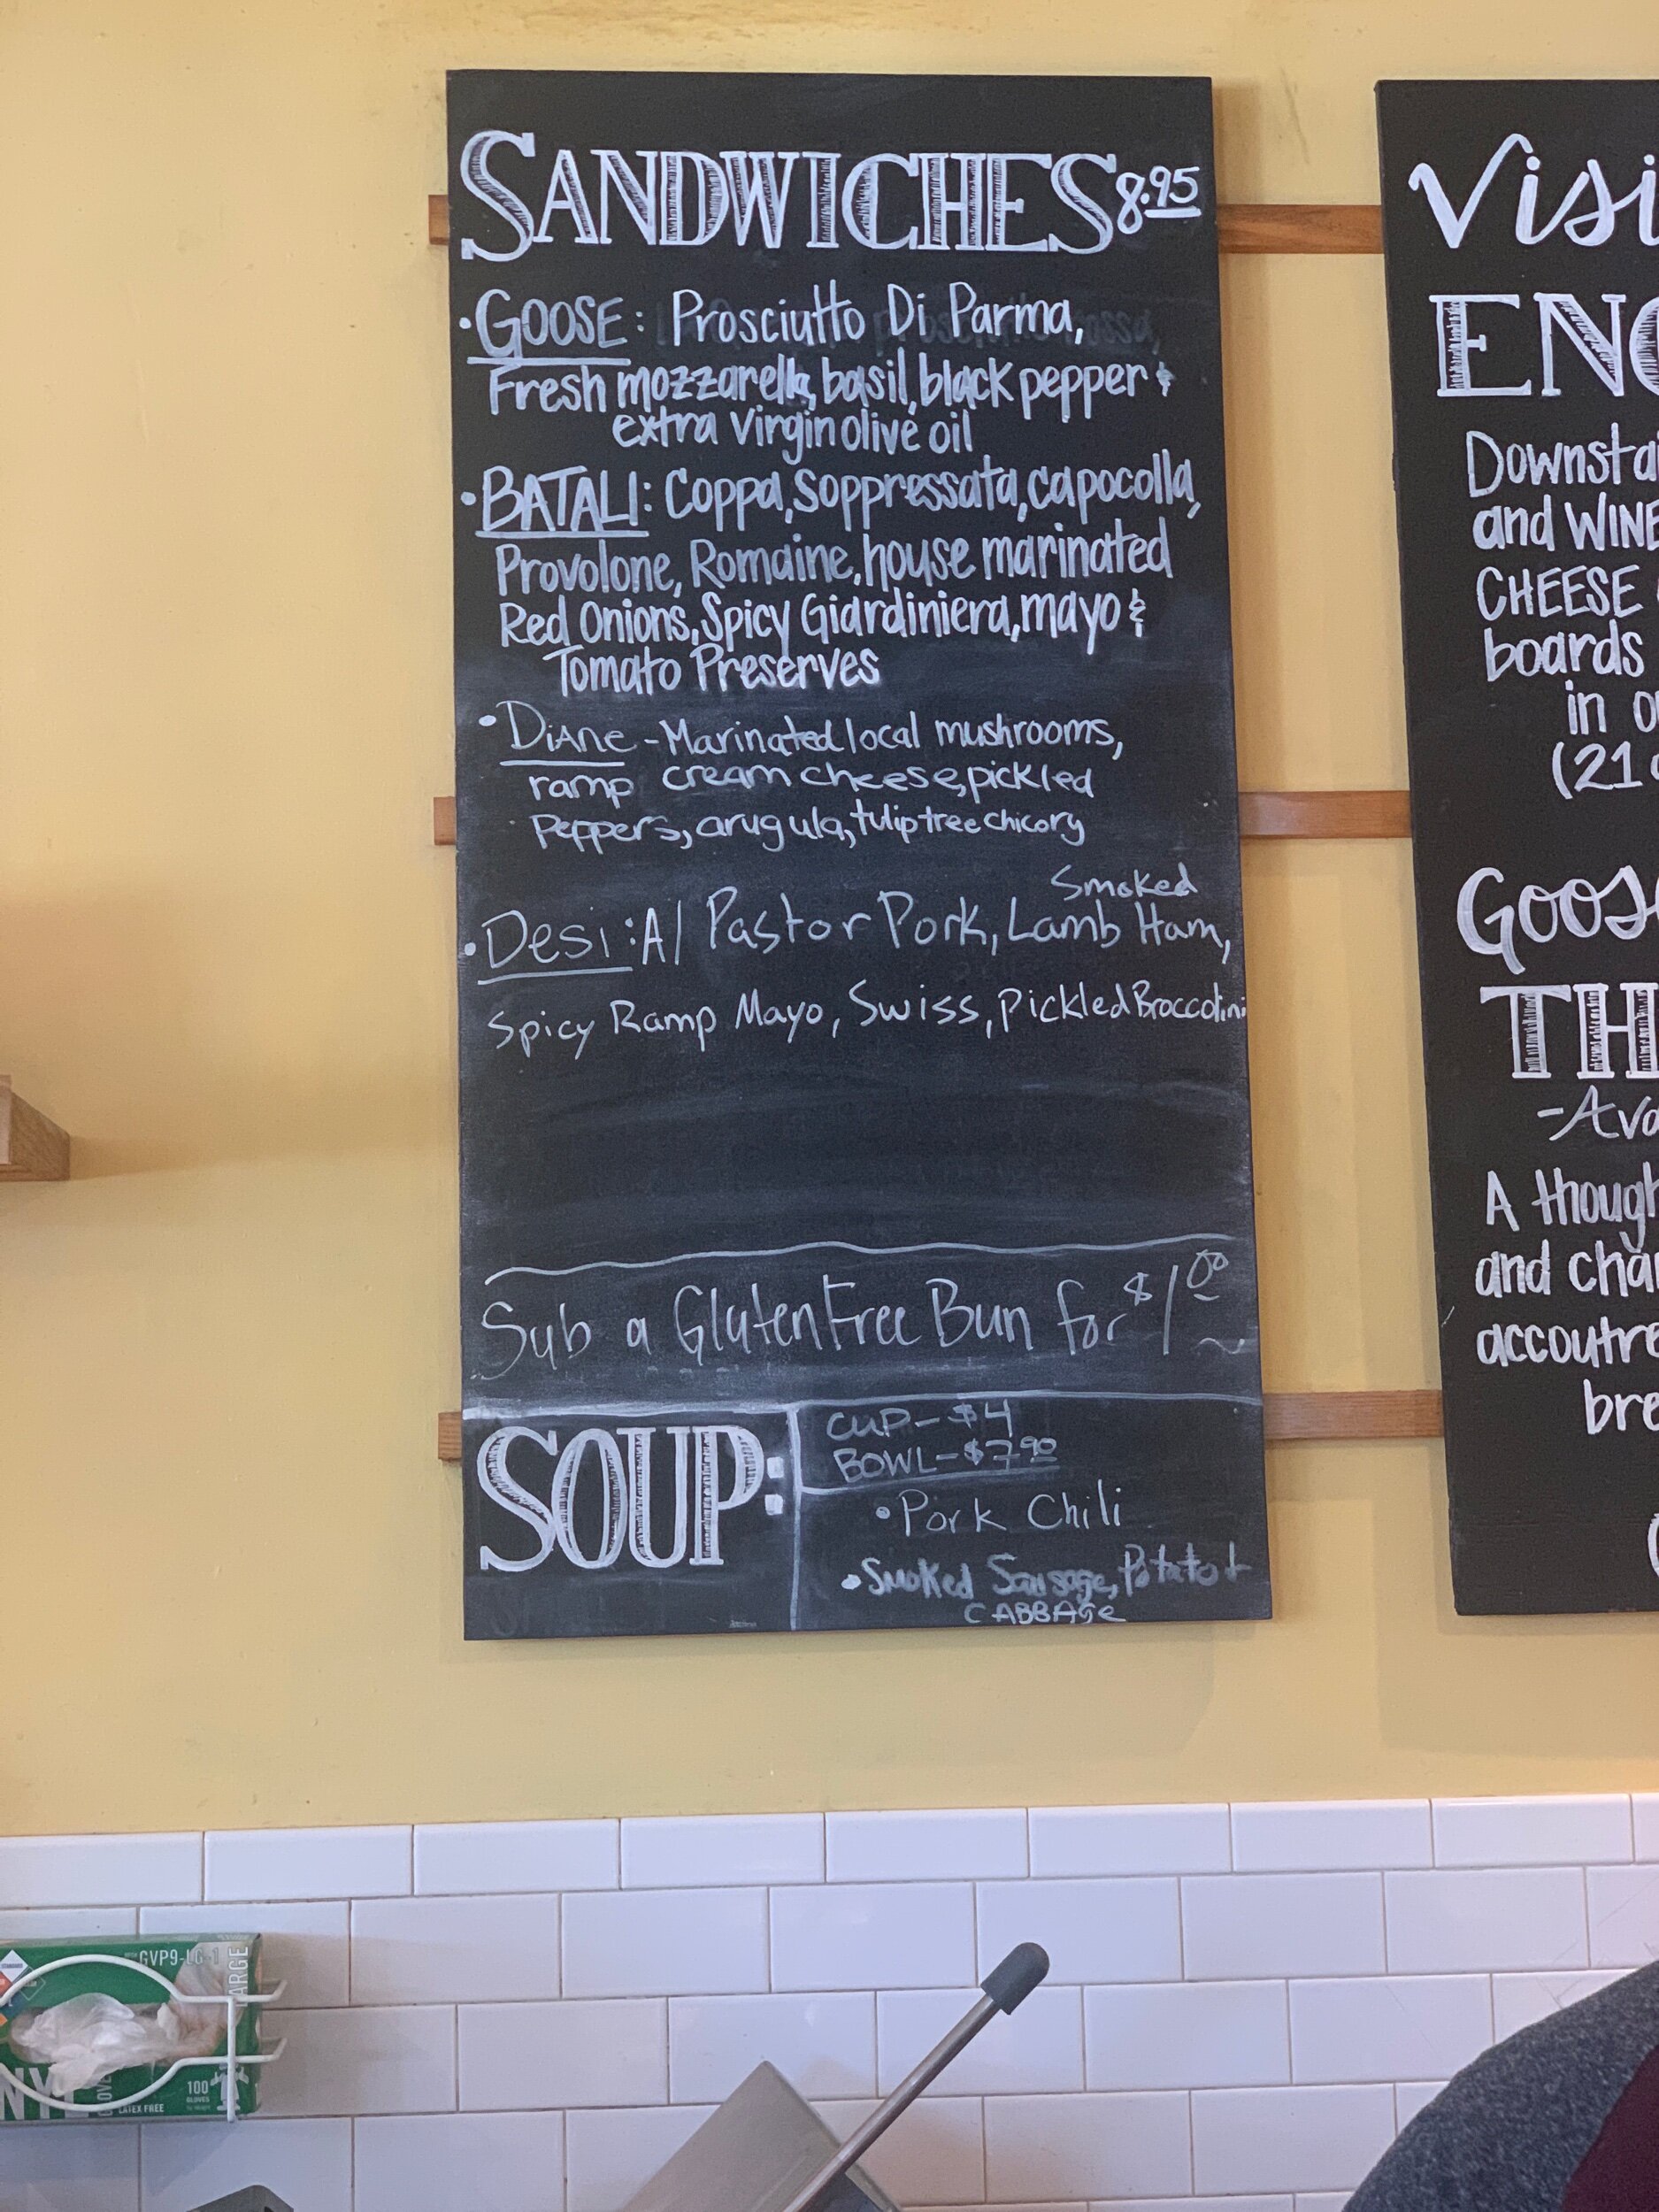 SANDWICHES 8.95
• GOOSE: Prosciutto Di Parma,
Fresh mozzarella, basil, black pepper &
extra virgin olive oil
• BATALI: Coppa, Soppressata, capocolla,
Provolone, Romaine, house marinated
Red Onions, Spicy Giardiniera, mayo &
Tomato Preserves
• Diane - Marinated local mushrooms,
ramp cream cheese, pickled
Peppers, arugula, tulip tree chicory
Smoked
• Desi: Al Pastor Pork, Lamb Ham,
Spicy Ramp Mayo, Swiss, Pickled Broccolini
Sub a Gluten Free Bun for $1.00
SOUP:
CUP - $4
BOWL - $7.90
• Pork Chili
• Smoked Sausage, Potato +
CABBAGE
Visi
ENO
Downsta
and WINE
CHEESE
boards
in o
(21
Goos
TH
- Ava
A though
and cha
accoutre
bre
GVP9-LG-1
LARGE
NY
100
GLOVES
LATEX FREE